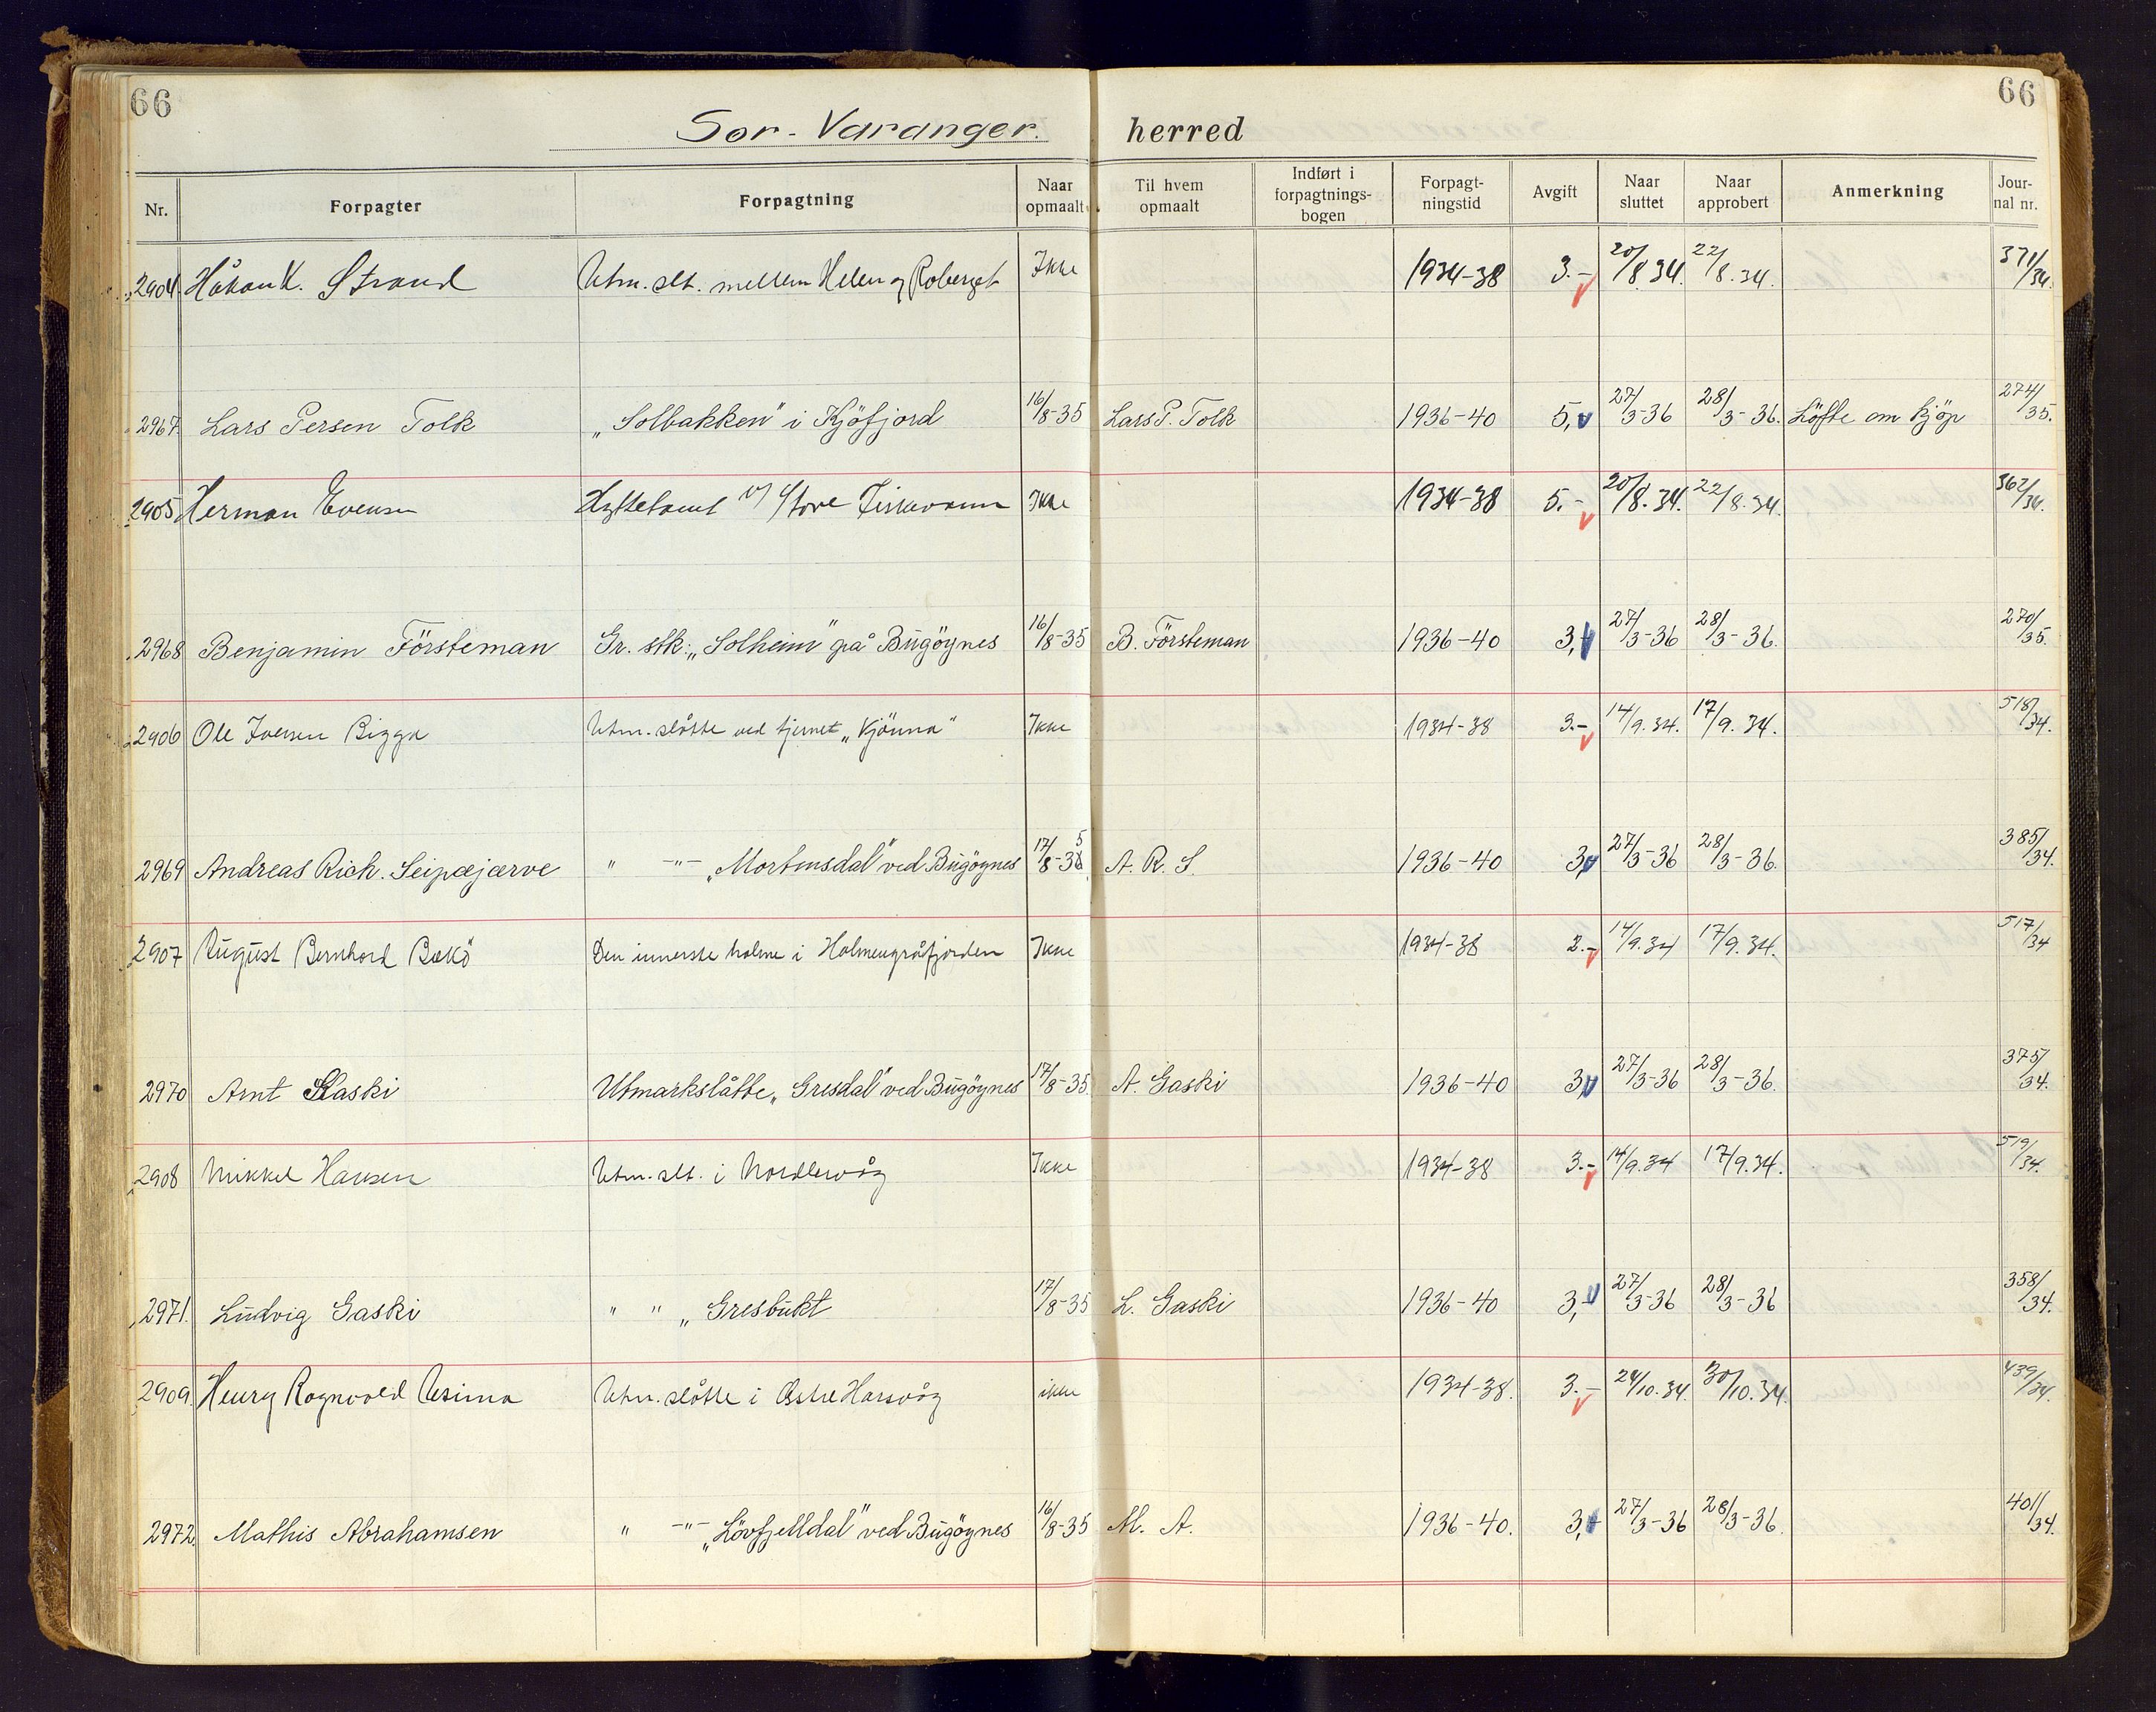 66 66
Sør-Varanger. herred
Nr. Forpagter Forpagtning Naar opmaalt Til hvem opmaalt Indført i forpagtnings-bogen Forpagt-ningstid Avgift Naar sluttet Naar approbert Anmerkning Jour-nal nr.
2904 Håkon K. Strand Utm. slt. mellem Helen og Roberget Ikke 1934-38 3.- 20/8.34. 22/8.34. 371/34.
2967 Lars Persen Tolk „Solbakken" i Kjöfjord 16/8-35 Lars P. Tolk 1936-40 5, 27/3-36 28/3-36. Löfte om kjöp 274/35.
2905 Herman Evensen Hyttetomt v/ Store Fiskevann Ikke 1934-38 5.- 20/8.34. 22/8.34. 362/34.
2968 Benjamin Försteman Gr. stk: „Solheim" på Bugöynes 16/8-35 B. Försteman 1936-40 3, 27/3-36 28/3-36. 270/35.
2906 Ole Iversen Bigga Utm. slåtte ved tjernet „Kjönna" Ikke 1934-38 3.- 14/9.34. 17/9.34. 518/34.
2969 Andreas Rich. Seipæjærve " -"- „Mortensdal" ved Bugöynes 17/8-35 A. R. S. 1936-40 3, 27/3-36 28/3-36. 385/34.
2907 August Bernhard Bækö Den innerste holme i Holmengråfjorden Ikke 1934-38 2.- 14/9.34 17/9.34. 517/34
2970 Arnt Gaski Utmarkslåtte „Gresdal" ved Bugöynes 17/8-35. A. Gaski 1936-40 3, 27/3-36 28/3-36. 375/34.
2908 Mikkel Hansen Utm. slt. i Nordlervåg Ikke 1934-38 3.- 14/9.34 17/9.34. 519/34.
2971. Ludvig Gaski " " „Gresbukt 17/8-35 L. Gaski 1936-40 3,- 27/3-36 28/3-36 358/34.
2909. Henry Ragnvald Usima Utm. slåtte i Østre Harsvåg ikke 1934-38. 3.- 24/10.34. 30/10.34. 439/34.
2972. Mathis Abrahamsen " -"- „Lövfjelldal" ved Bugöynes 16/8-35 M. A. 1936-40. 3, 27/3-36 28/3-36. 401/34.